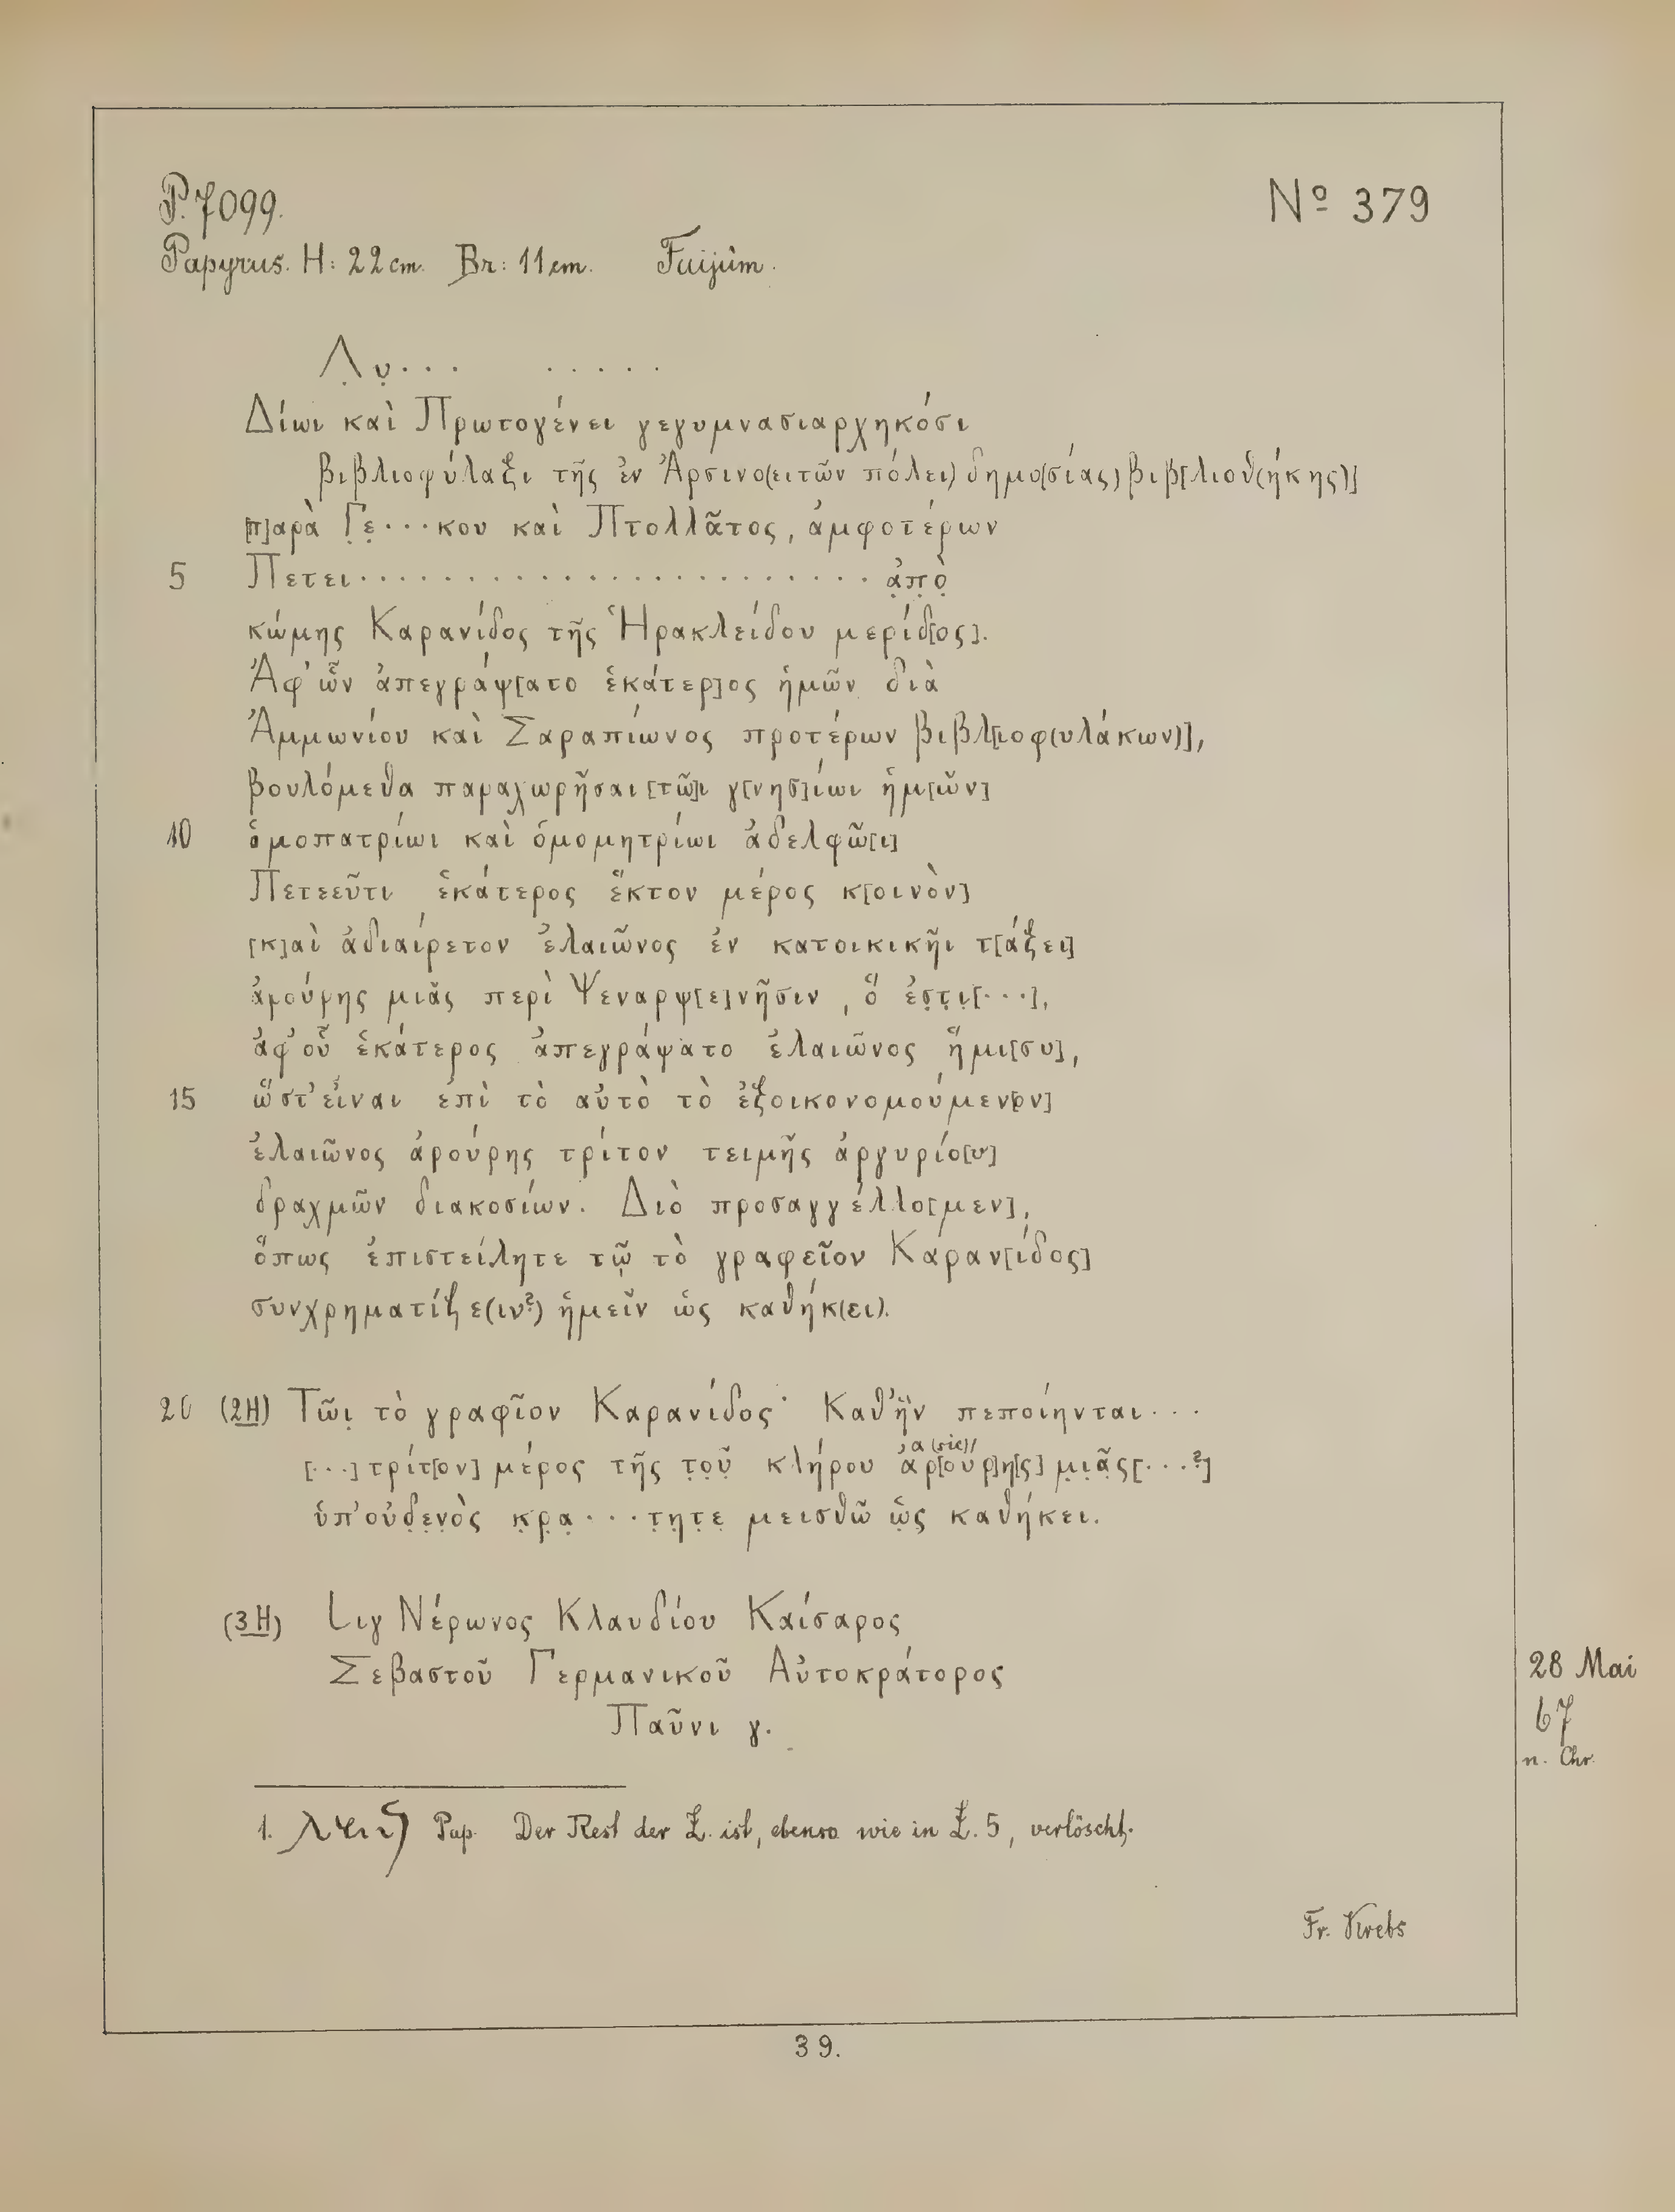 P. 7099. Nº 379
Papyrus. H: 22 cm. Br: 11 cm. Faijûm.
Λ̣υ̣··· ·····
Δίωι καὶ Πρωτογένει γεγυμνασιαρχηκόσι
βιβλιοφύλαξι τῆς ἐν Ἀρσινο(ειτῶν πόλει) δημο(σίας) βιβ[λιοθ(ήκης)]
[π]αρὰ Γ̣ε̣···κου καὶ Πτολλᾶτος, ἀμφοτέρων
5 Πετει························ ἀ̣π̣ὸ̣
κώμης Καρανίδος τῆς Ἡρακλείδου μερίδ[ος].
Ἀφ' ὧν ἀπεγράψ[ατο ἑκάτερ]ος ἡμῶν διὰ
Ἀμμωνίου καὶ Σαραπίωνος προτέρων βιβλ[ιοφ(υλάκων)],
βουλόμεθα παραχωρῆσαι [τῶ]ι γ[νησ]ίωι ἡμ[ῶν]
10 ὁμοπατρίωι καὶ ὁμομητρίωι ἀδελφῶ[ι]
Πετεεῦτι ἑκάτερος ἕκτον μέρος κ[οινὸν]
[κ]αὶ ἀδιαίρετον ἐλαιῶνος ἐν κατοικικῆι τ[άξει]
ἀρούρης μιᾶς περὶ Ψεναρψ[ε]νῆσιν, ὅ ἐσ̣τ̣ι̣[···],
ἀφ' οὗ ἑκάτερος ἀπεγράψατο ἐλαιῶνος ἥμι[συ],
15 ὥστ' εἶναι ἐπὶ τὸ αὐτὸ τὸ ἐξοικονομούμεν[ον]
ἐλαιῶνος ἀρούρης τρίτον τειμῆς ἀργυρίο[υ]
δραχμῶν διακοσίων. Διὸ προσαγγέλλο[μεν],
ὅπως ἐπιστείλητε τῷ τὸ γραφεῖον Καραν[ίδος]
συνχρηματίζε(ιν?) ἡμεῖν ὡς καθήκ(ει).
20 (2H) Τῶι̣ τὸ γραφῖον Καρανίδος· Καθ' ἣν πεποίηνται···
[···] τρίτ[ον] μέρος τῆς τ̣ο̣ῦ̣ κλήρου ἀρ[ούρ]η[ς] μ̣ι̣ᾶ̣ς[···?]
ἀ (sic)
ὑπ' οὐδ̣ε̣ν̣ὸς κ̣ρ̣α̣···τ̣η̣τ̣ε̣ μεισθῶ ὡ̣ς̣ καθήκει.
(3H) L ιγ Νέρωνος Κλαυδίου Καίσαρος
Σεβαστοῦ Γερμανικοῦ Αὐτοκράτορος
Παῦνι γ.
28 Mai
67
n. Chr.
1. Pap. Der Rest der Z. ist, ebenso wie in Z. 5, verlöscht.
Fr. Krebs
39.